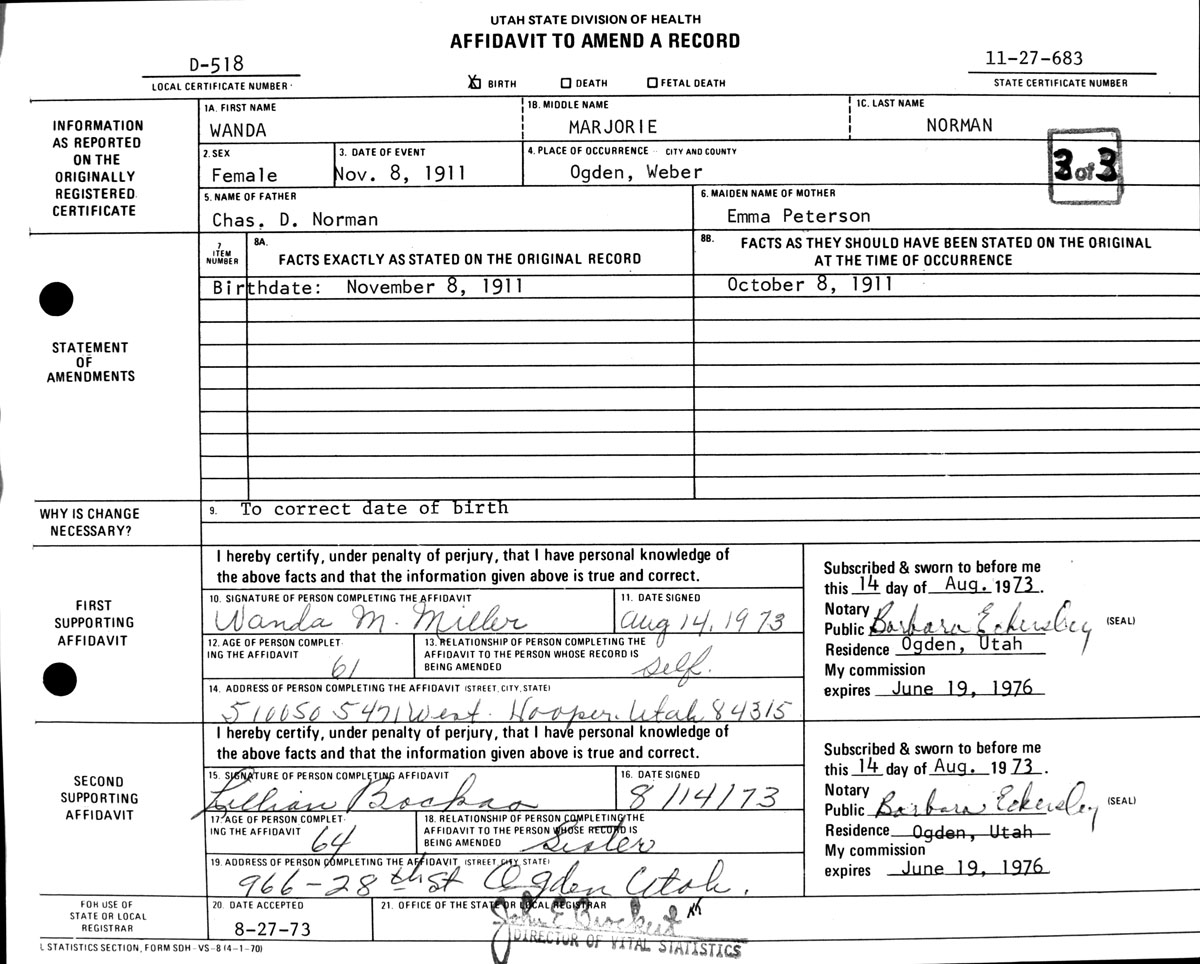 UTAH STATE DIVISION OF HEALTH
AFFIDAVIT TO AMEND A RECORD
D-518
LOCAL CERTIFICATE NUMBER
X BIRTH ☐ DEATH ☐ FETAL DEATH
11-27-683
STATE CERTIFICATE NUMBER
INFORMATION
AS REPORTED
ON THE
ORIGINALLY
REGISTERED
CERTIFICATE
1A. FIRST NAME
WANDA
1B. MIDDLE NAME
MARJORIE
1C. LAST NAME
NORMAN
2. SEX
Female
3. DATE OF EVENT
Nov. 8, 1911
4. PLACE OF OCCURRENCE -- CITY AND COUNTY
Ogden, Weber
3 of 3
5. NAME OF FATHER
Chas. D. Norman
6. MAIDEN NAME OF MOTHER
Emma Peterson
STATEMENT
OF
AMENDMENTS
7
ITEM
NUMBER
8A.
FACTS EXACTLY AS STATED ON THE ORIGINAL RECORD
8B. FACTS AS THEY SHOULD HAVE BEEN STATED ON THE ORIGINAL
AT THE TIME OF OCCURRENCE
Birthdate: November 8, 1911
October 8, 1911
WHY IS CHANGE
NECESSARY?
9. To correct date of birth
FIRST
SUPPORTING
AFFIDAVIT
I hereby certify, under penalty of perjury, that I have personal knowledge of
the above facts and that the information given above is true and correct.
10. SIGNATURE OF PERSON COMPLETING THE AFFIDAVIT
Wanda M. Miller
11. DATE SIGNED
Aug 14, 1973
12. AGE OF PERSON COMPLET-
ING THE AFFIDAVIT
61
13. RELATIONSHIP OF PERSON COMPLETING THE
AFFIDAVIT TO THE PERSON WHOSE RECORD IS
BEING AMENDED
self.
14. ADDRESS OF PERSON COMPLETING THE AFFIDAVIT (STREET, CITY, STATE)
5471 West. Hooper. Utah 84315
Subscribed & sworn to before me
this 14 day of Aug. 1973.
Notary
Public Barbara Eckersley (SEAL)
Residence Ogden, Utah
My commission
expires June 19, 1976
SECOND
SUPPORTING
AFFIDAVIT
I hereby certify, under penalty of perjury, that I have personal knowledge of
the above facts and that the information given above is true and correct.
15. SIGNATURE OF PERSON COMPLETING AFFIDAVIT
Lillian
16. DATE SIGNED
8/14/73
17. AGE OF PERSON COMPLET-
ING THE AFFIDAVIT
64
18. RELATIONSHIP OF PERSON COMPLETING THE
AFFIDAVIT TO THE PERSON WHOSE RECORD IS
BEING AMENDED
Sister
19. ADDRESS OF PERSON COMPLETING THE AFFIDAVIT (STREET, CITY, STATE)
966-28th St Ogden Utah.
Subscribed & sworn to before me
this 14 day of Aug. 1973.
Notary
Public Barbara Eckersley (SEAL)
Residence Ogden, Utah
My commission
expires June 19, 1976
FOR USE OF
STATE OR LOCAL
REGISTRAR
20. DATE ACCEPTED
8-27-73
21. OFFICE OF THE STATE OR LOCAL REGISTRAR
John E. Brockert
DIRECTOR OF VITAL STATISTICS
L STATISTICS SECTION, FORM SDH-VS-8 (4-1-70)